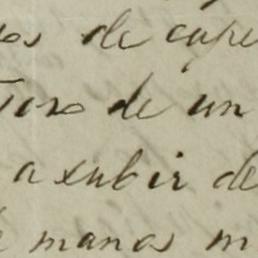 os de cape
Toro de un
a subir de
manos m